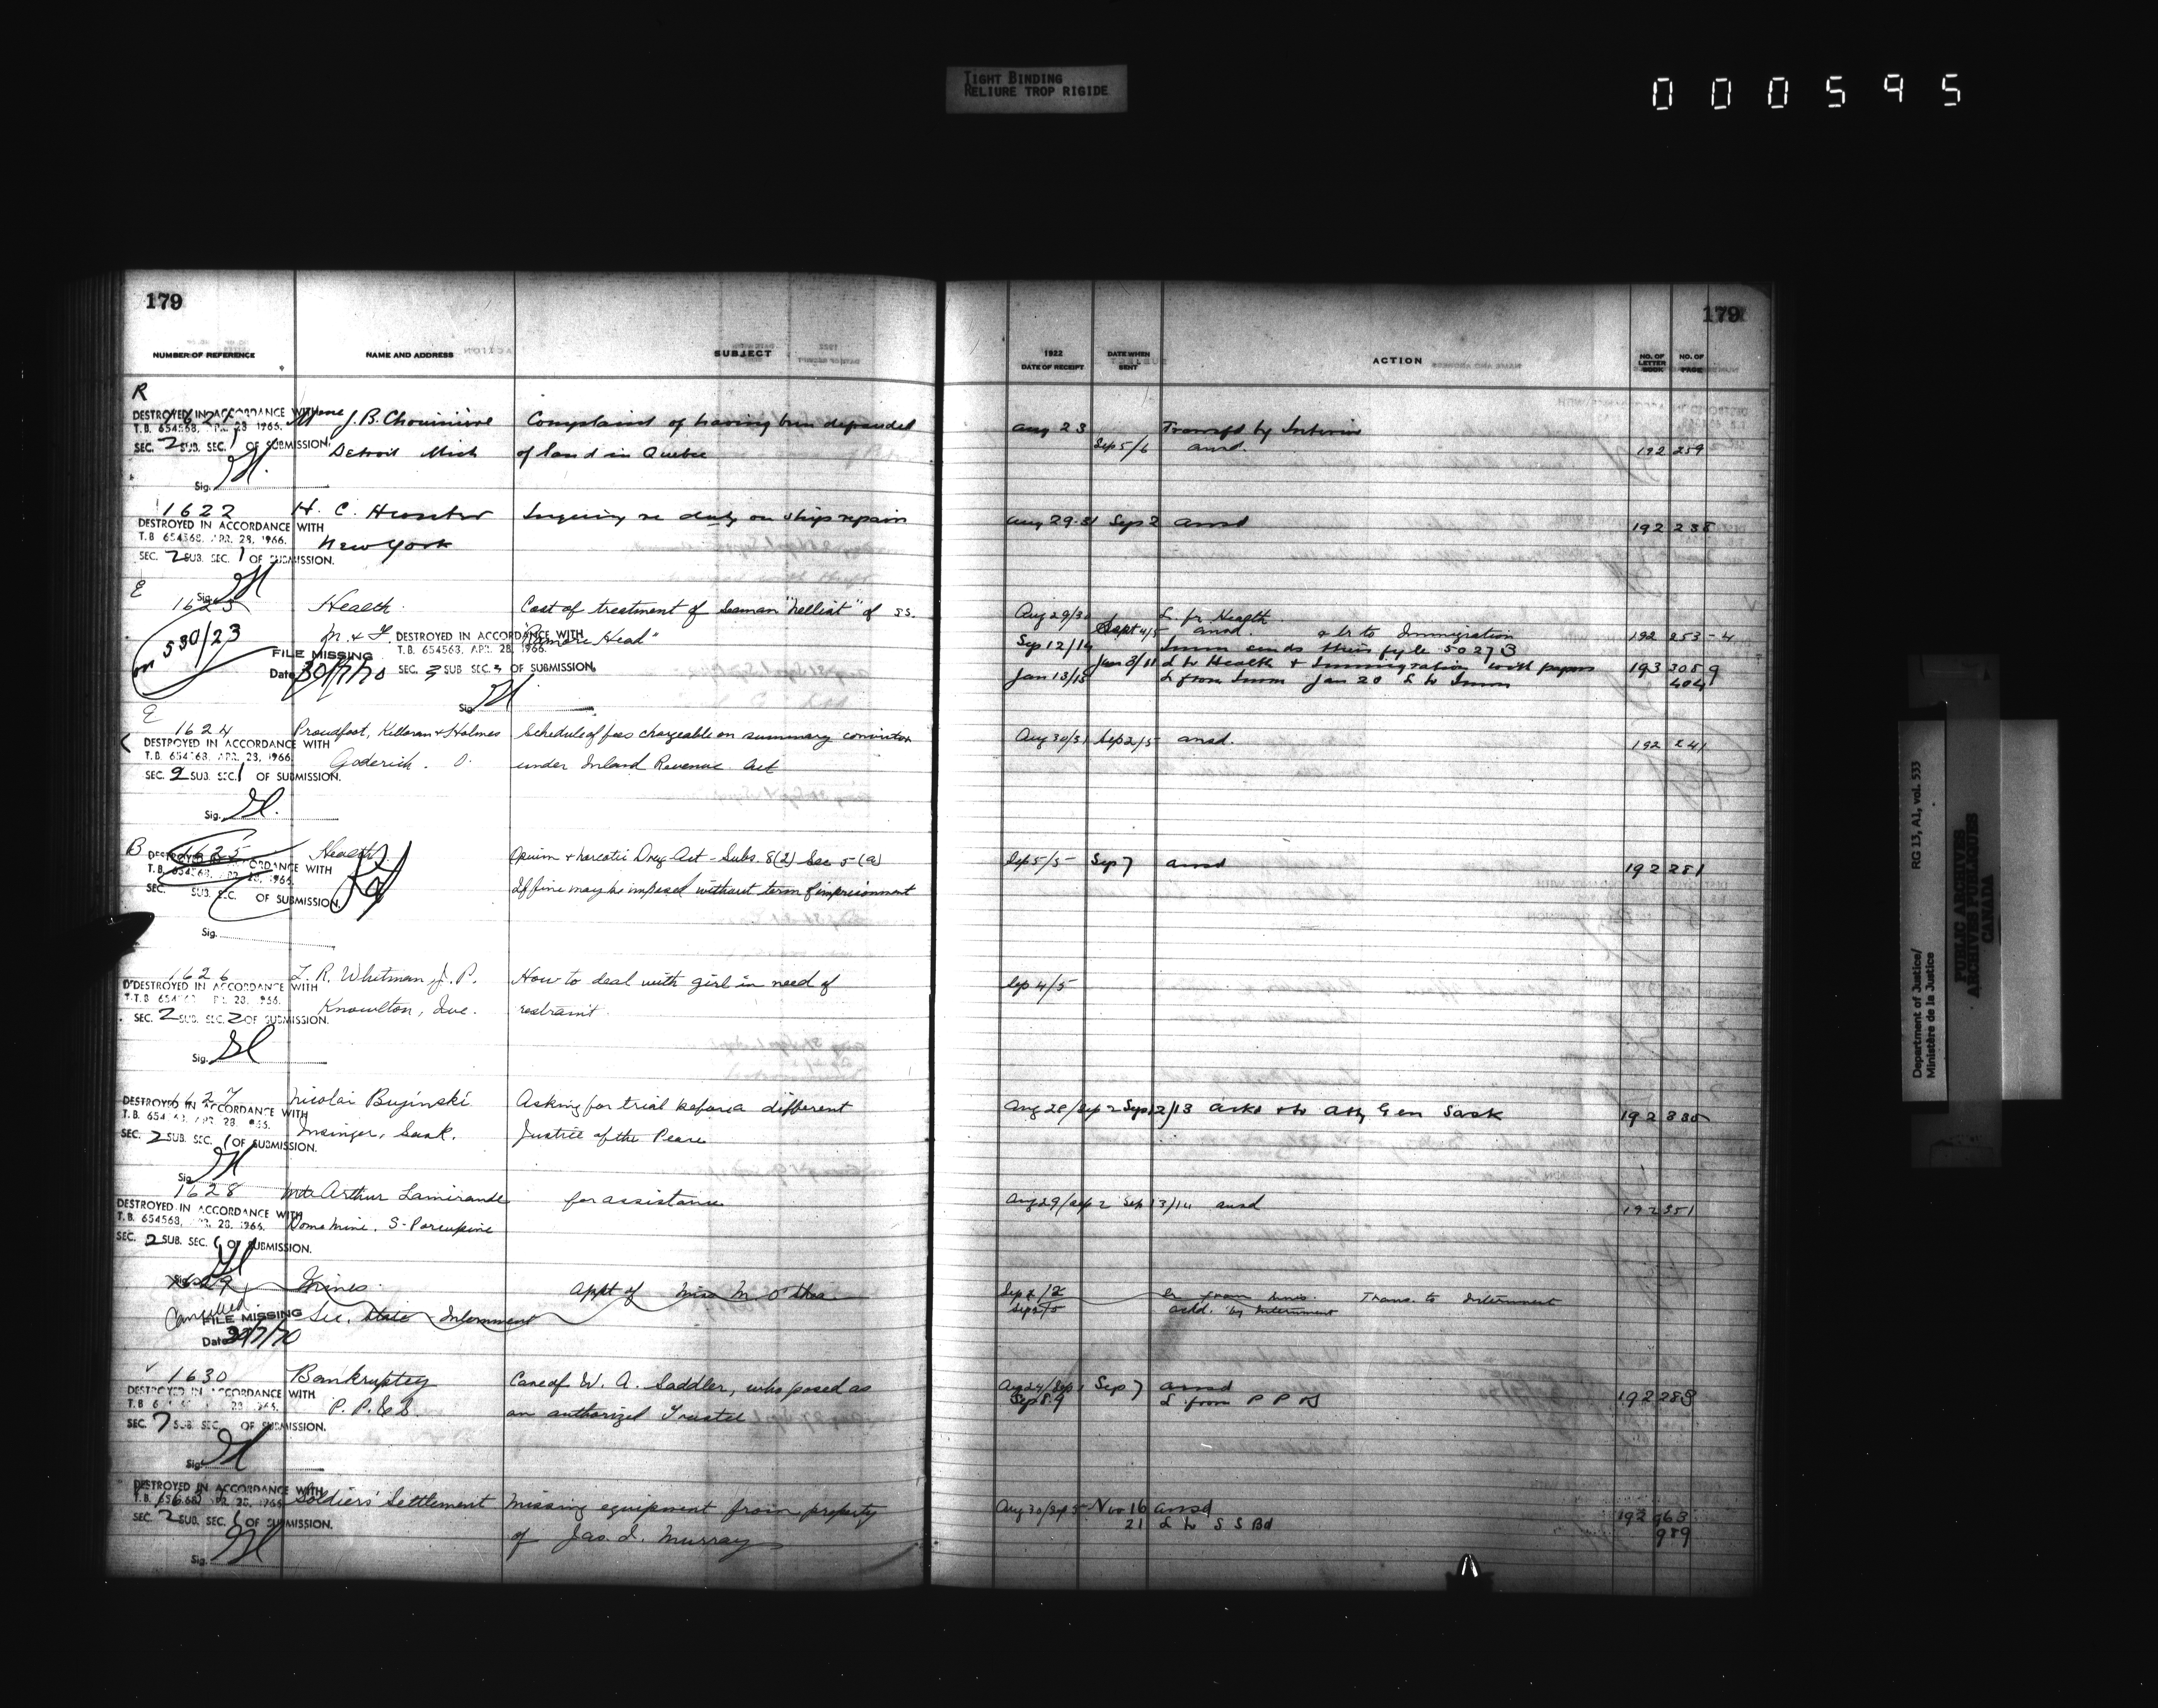 TIGHT BINDING
RELIURE TROP RIGIDE
000595
179
179
NUMBER OF REFERENCE
NAME AND ADDRESS
SUBJECT
1922
DATE OF RECEIPT
DATE WHEN SENT
ACTION
NO. OF LETTER BOOK
NO. OF PAGE
R
DESTROYED IN ACCORDANCE WITH
T.B. 654568, APR. 28, 1966.
SEC. 2 SUB. SEC. 1 OF SUBMISSION.
Sig.
J. B. Chouinière
Detroit Mich
Complaint of having been defrauded
of land in Quebec
Aug 23
Sep 5/6 ansd.
192 259
1622
DESTROYED IN ACCORDANCE WITH
T.B. 654568, APR. 28, 1966.
SEC. 2 SUB. SEC. 1 OF SUBMISSION.
Sig.
H. C.
New York
Inquiry re duty on ships repairs
Aug 29.31 Sep 2 ansd
192 238
E
1623
530/23
FILE MISSING
Date 30/7/70
Health.
M. & F.
DESTROYED IN ACCORDANCE WITH
T.B. 654568, APR. 28, 1966.
SEC. SUB SEC. OF SUBMISSION.
Sig
Cost of treatment of Seaman "Nelliat" of S.S.
"Ramore Head"
Aug 29/30 L. fr Health.
Sept 4/5 ansd. & lr to Immigration
192 253-4
Sep 12/14 Immn sends their fyle 50273
L to Health & Immigration with papers
193 305 9
Jan 13/15 L from Immn Jan 20 L to Immn
404
1624
DESTROYED IN ACCORDANCE WITH
T.B. 654568, APR. 28, 1966.
SEC. 2 SUB. SEC. 1 OF SUBMISSION.
Sig.
Proudfoot, Killoran & Holmes
Goderich. O.
Schedule of fees chargeable on summary conviction
under Inland Revenue Act
Aug 30/31 Sep 2/5 ansd.
192 241
B
1625
DESTROYED IN ACCORDANCE WITH
T.B. 654568, APR. 28, 1966.
SEC. SUB. SEC. OF SUBMISSION.
Sig.
Health.
Opium & Narcotic Drug Act - Subs. 8(2) Sec 5-(a)
If fine may be imposed without term of imprisonment
Sep 5/5 Sep 7 ansd
192 281
1626
DESTROYED IN ACCORDANCE WITH
SEC. 2 SUB. SEC. 2 OF SUBMISSION.
Sig.
R. Whitman J. P.
Knowlton, Que.
How to deal with girl in need of
restraint
Sep 4/5
1627
DESTROYED IN ACCORDANCE WITH
SEC. 2 SUB. SEC. 1 OF SUBMISSION.
Sig.
Nicolai Buginski
Insinger, Sask.
Asking for trial before a different
Justice of the Peace
Aug 28/Sep 2 Sep 12/13 Atty Gen Sask
192 335
1628
DESTROYED IN ACCORDANCE WITH
T.B. 654568, APR. 28, 1966.
SEC. 2 SUB. SEC. OF SUBMISSION.
Arthur Lamirande
Dome Mine. S. Porcupine
for assistance
Aug 29/Sep 2 Sep 13/14 ansd
192 351
1629
Cancelled.
FILE MISSING
Date 30/7/70
Mines.
Sec. State Internment
Appt of Miss M. O'Shea
Sep 1/2 Lr from Mines. Trans. to Internment
ackd. by Internment
1630
DESTROYED IN ACCORDANCE WITH
SEC. 7 SUB. SEC. OF SUBMISSION.
Sig.
Bankruptcy
P. P. & S.
Case of W. A. Saddler, who posed as
an authorized Trustee
Aug 24/Sep 1 Sep 7 ansd
192 288
Sep 8.9 L from P P &S
DESTROYED IN ACCORDANCE WITH
SEC. 2 SUB. SEC. OF SUBMISSION.
Sig.
Soldiers' Settlement
Missing equipment from property
of Jas. I. Murray
Aug 30/Sep 5 Nov 16 ansd
192 963
21 L to S S Bd
989
Department of Justice/
Ministère de la Justice
RG 13, A1, vol. 533
PUBLIC ARCHIVES
ARCHIVES PUBLIQUES
CANADA